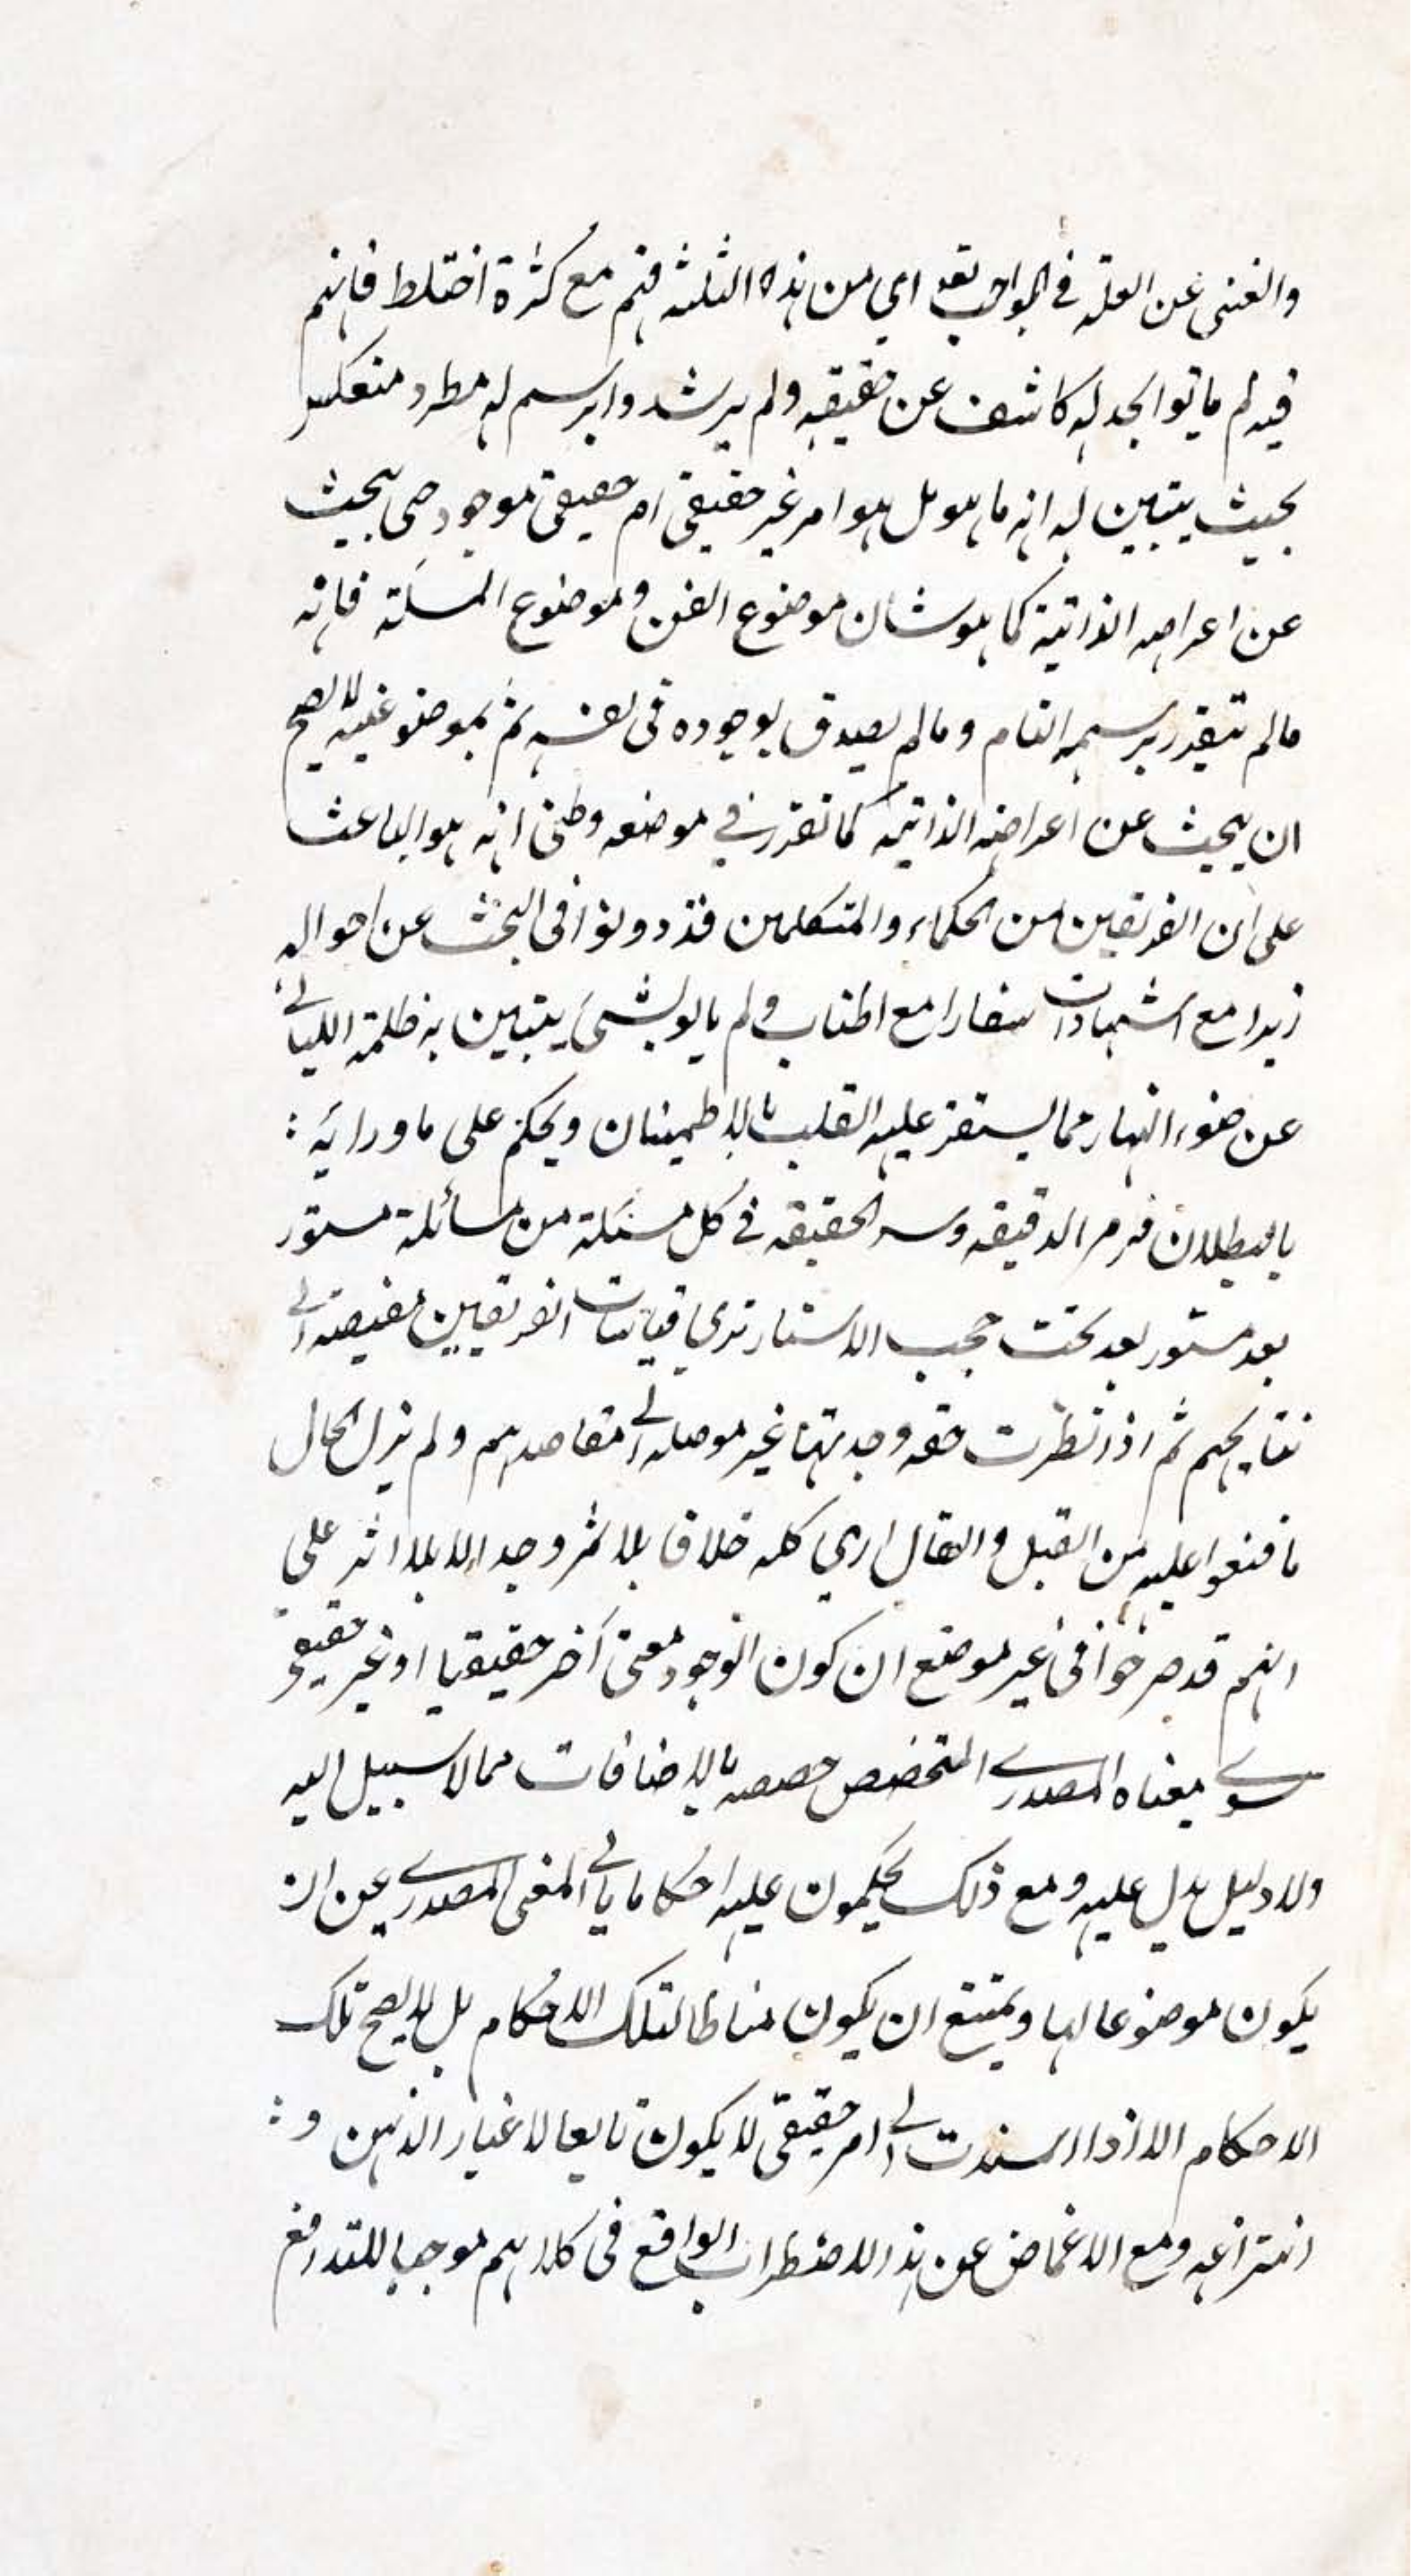 والغنى عن العلة في الواجب تعه اي من هذه الثلثة فهم مع كثرة اختلاط فانهم
فيه لم ياتوا بحد له كاشف عن حقيقته ولم يرشدوا برسم له مطرد منعكس
بحيث يتبين له انه ما هو هل هو امر غير حقيقي ام حقيقي موجود حتى يبحث
عن اعراضه الذاتية كما هو شان موضوع الفن وموضوع المسئلة فانه
مالم يتقرر برسمه التام ومالم يصدق بوجوده في نفسه ثم بموضوعيته لا يصح
ان يبحث عن اعراضه الذاتية كما تقرر في موضعه وظني انه هو الباعث
على ان الفريقين من الحكماء والمتكلمين قد دونوا في البحث عن احواله
زبرا مع اسفارا مع اطناب ولم ياتو بشيء يتبين به ظلمة الليالي
عن ضوء النهار مما يستقر عليه القلب بالاطمينان ويحكم على ما ورائه :
بالبطلان فرمز الدقيقة وسر الحقيقة في كل مسئلة من مسائله مستور
بعد مستور بعد تحت حجب الاستار ترى قياسات الفريقين مفيضة الى
نتايجهم ثم اذا نظرت حقه وجدتها غير موصلة الى مقاصدهم ولم يزل الحال
ما قنعوا عليه من القيل والقال ارى كله خلاف بلا ثمر وجدالا بلا اثر على
انهم قد صرحوا في غير موضع ان كون الوجود معنى آخر حقيقيا او غير حقيقي
سوى معناه المصدري المتخصص حصصه بالاضافات مما لا سبيل اليه
ولا دليل يدل عليه ومع ذلك يحكمون عليه احكاما يابى المعنى المصدري عن ان
يكون موضوعا لها ويمتنع ان يكون مناطا لتلك الاحكام بل لا يصح تلك
الاحكام الا اذا اسندت الى امر حقيقي لا يكون تابعا لاعتبار الذهن و :
انتزاعه ومع الاغماض عن هذا الاضطراب الواقع في كلامهم موجبا للتدافع